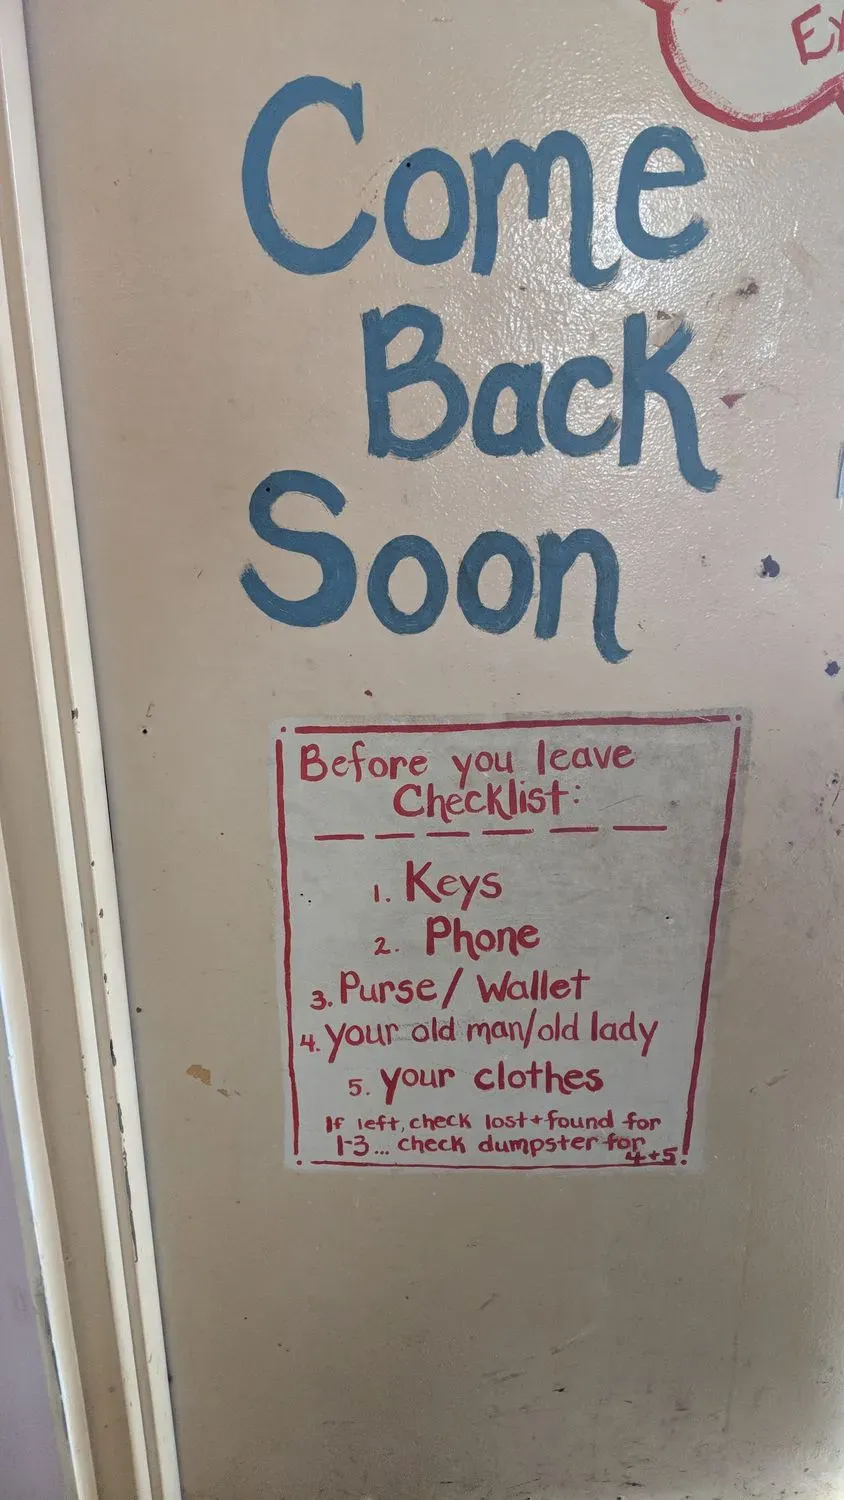 Come
Back
Soon
Before you leave
Checklist:
1. Keys
2. Phone
3. Purse/ Wallet
4. your old man/old lady
5. your clothes
If left, check lost+found for
1-3... check dumpster for
4+5!